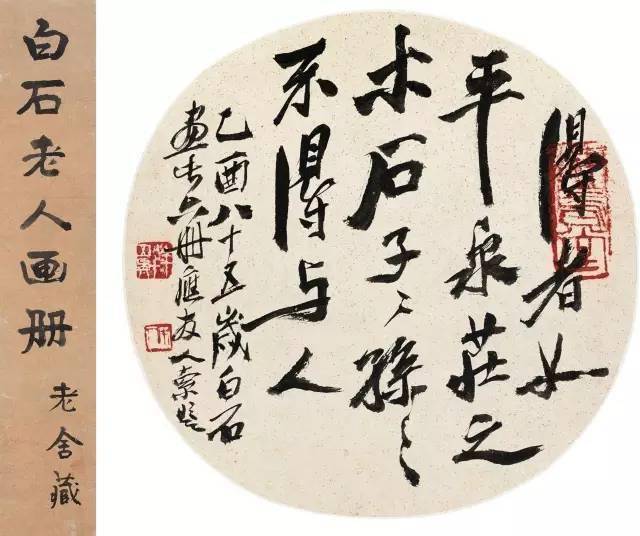 白石老人画册
老舍藏
得者如
平泉莊之
木石子〻孫〻
不得与人
乙酉八十五歲白石
畫 六册應友人索題